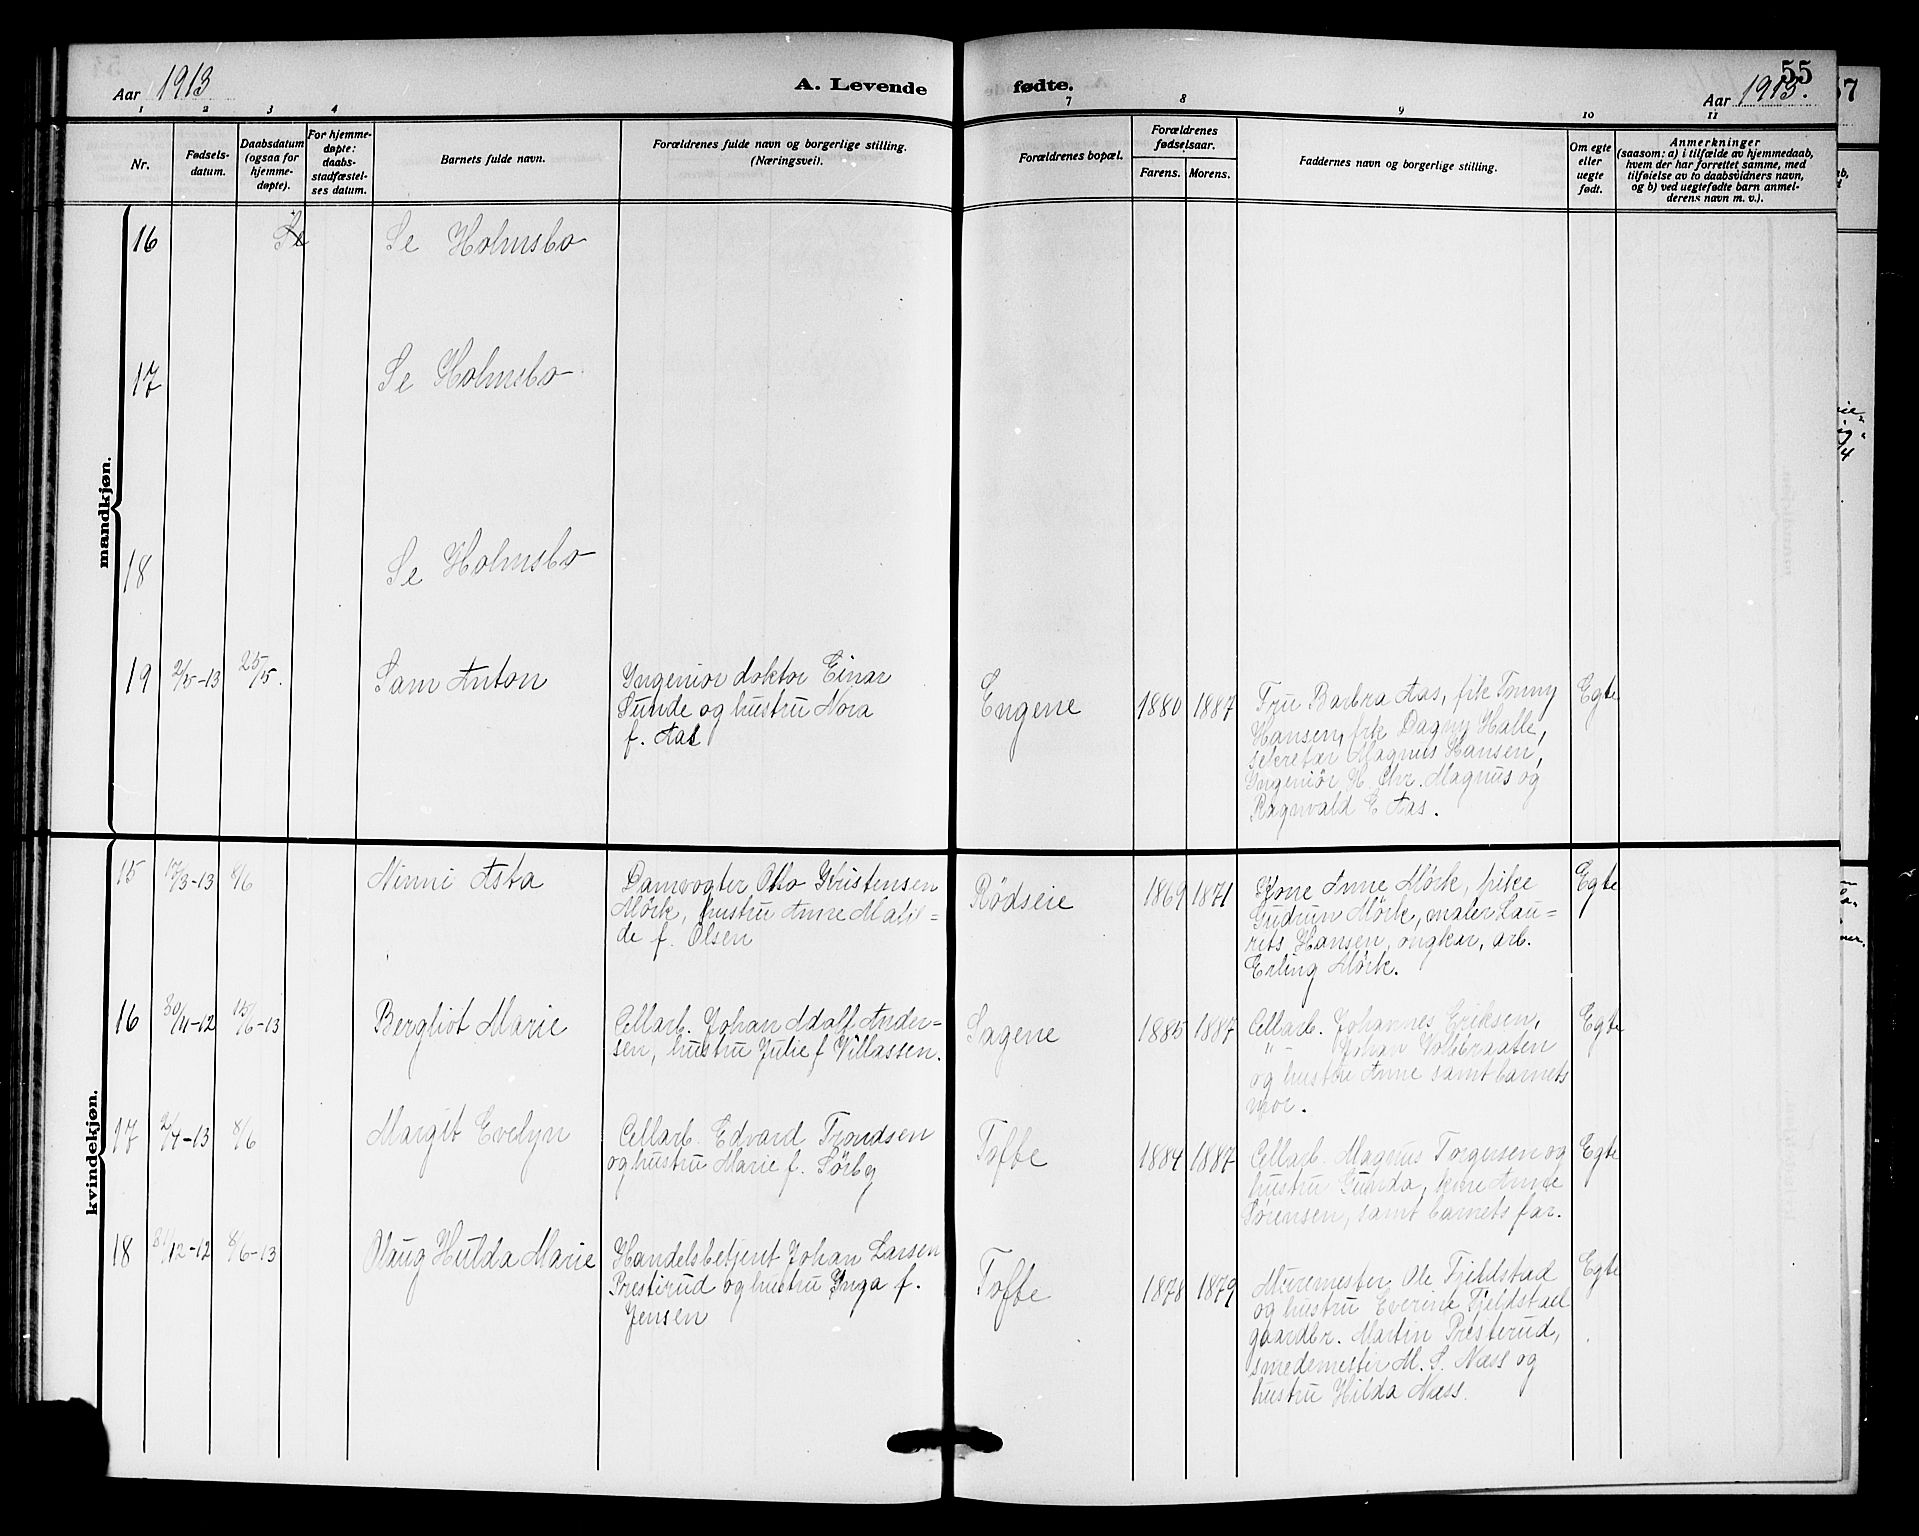 55
Aar 1913
A. Levende
fødte.
Aar 1913.
57
1 2 3 4 7 8 9 10 11
Nr.
Fødsels-
datum.
Daabsdatum
(ogsaa for
hjemme-
døpte).
For hjemme-
døpte:
daabs-
stadfæstel-
ses datum.
Barnets fulde navn.
Forældrenes fulde navn og borgerlige stilling.
(Næringsvei).
Forældrenes bopæl.
Forældrenes
fødselsaar.
Farens. Morens.
Faddernes navn og borgerlige stilling.
Om egte
eller
uegte
født.
Anmerkninger
(saasom: a) i tilfælde av hjemmedaab,
hvem der har forrettet samme, med
tilføielse av to daabsvidners navn,
og b) ved uegtefødte barn anmel-
derens navn m. v.).
mandkjøn.
16 Se Se Holmsbo
17 Se Holmsbo
18 Se Holmsbo
19 2/5-13 25/5. Sam Anton
Ingeniør doktor Einar
Sunde og hustru Nora
f. Aas
Engene 1880 1887
Fru Barbra Aas, frk Tonny
Hansen, frk Dagny Halle,
sekretær Magnus Hansen,
Ingeniør H. Chr. Magnus og
Ragnvald E Aas.
Egte
kvindekjøn.
15 17/3-13 8/6 Ninni Asta
Damvogter Otto Kristensen
Mörk, hustru Anne Matil=
de f. Olsen
Rödseie 1869 1871
Kone Anne Mörk, pike
Gudrun Mörk, maler Lau=
rits Hansen, ungkar, arb.
Erling Mörk.
Egte
16 30/11-12 15/6-13 Bergliot Marie
Cellarb. Johan Adolf Ander=
sen, hustru Julie f Villassen.
Sagene 1885 1887
Cellarb. Johannes Eriksen,
" - Johan
og hustru Anne samt barnets
mor.
Egte
17 2/4-13 8/6 Margit Evelyn
Cellarb. Edvard Trondsen
og hustru Marie f. Sörby
Tofte 1884 1887
Cellarb. Magnus Torgersen og
hustru Gunda, kone Anne
Sörensen, samt barnets far.
Egte
18 31/12-12 8/6-13 Olaug Hulda Marie
Handelsbetjent Johan Larsen
Presterud og hustru Inga f.
Jensen
Tofte 1878 1879
Muremester Ole Fjeldstad
og hustru Everine Fjeldstad
gaardbr. Martin Presterud,
smedemester M. S. Næss og
hustru Hilda Næss.
Egte